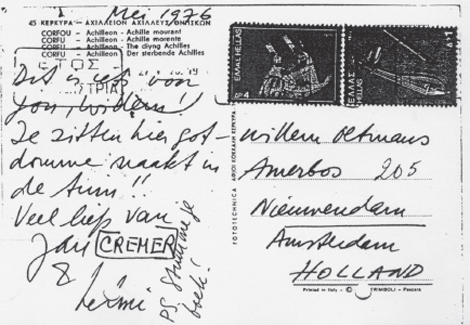 Mei 1976
45 ΚΕΡΚΥΡΑ — ΑΧΙΛΛΕΙΟΝ ΑΧΙΛΛΕΥΣ ΘΝΗΣΚΩΝ
CORFOU — Achilleon - Achille mourant
CORFU — Achilleon - Achille morente
CORFU — Achilleon - The diyng Achilles
KORFU — Achilleon - Der sterbende Achilles
ΕΤΟΣ
ΙΣΤΡΙΑΣ
Dit is iets voor
jou, Willem!
Je zitten hier got-
domme naakt in
de tuin!!
Veel liefs van
Jan CREMER
&
PS. Stuur me je
boek!
ΕΛΛΑΣ HELLAS
ΔΡ4
ΕΛΛΑΣ
FOTOTECHNICA ΑΦΟΙ ΚΟΚΚΑΛΗ ΚΕΡΚΥΡΑ
Willem Oltmans
Amerbos 205
Nieuwendam
Amsterdam
HOLLAND
Printed in Italy - TRIMBOLI - Pescara